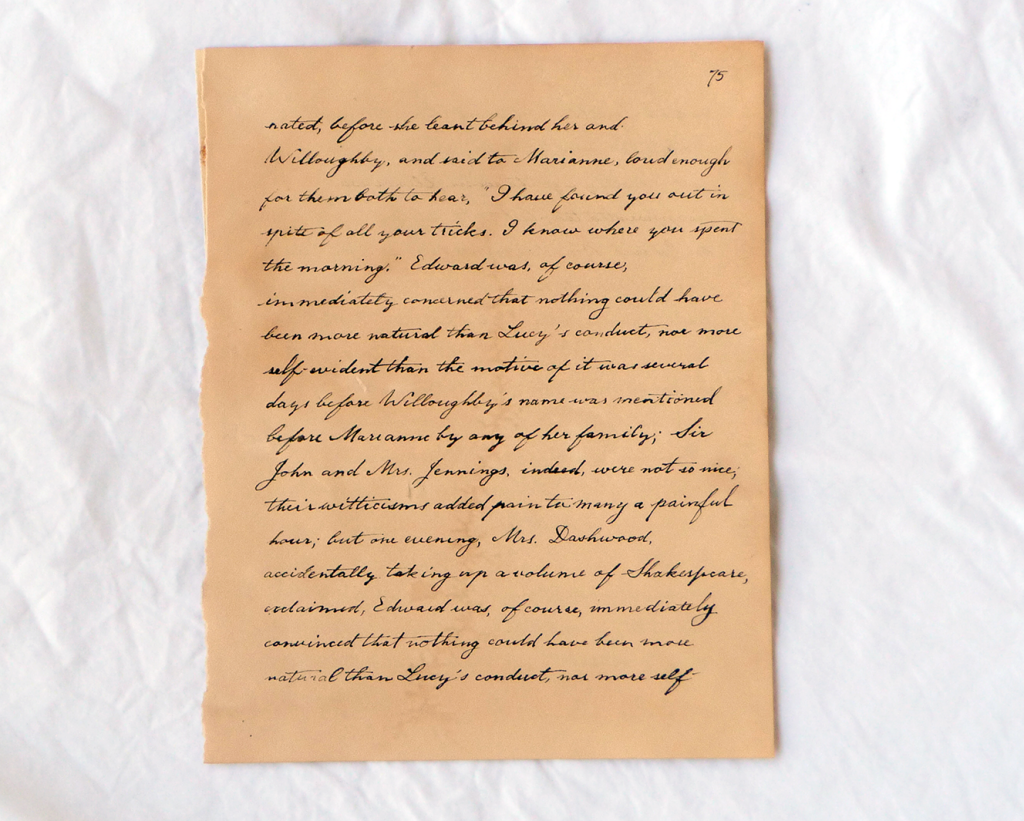 75
nated, before she leant behind her and
Willoughby, and said to Marianne, loud enough
for them both to hear, "I have found you out in
spite of all your tricks. I know where you spent
the morning." Edward was, of course,
immediately concerned that nothing could have
been more natural than Lucy's conduct, nor more
self-evident than the motive of it was several
days before Willoughby's name was mentioned
before Marianne by any of her family; Sir
John and Mrs. Jennings, indeed, were not so nice;
their witticisms added pain to many a painful
hour; but one evening, Mrs. Dashwood,
accidentally taking up a volume of Shakespeare,
exclaimed, Edward was, of course, immediately
convinced that nothing could have been more
natural than Lucy's conduct, nor more self-